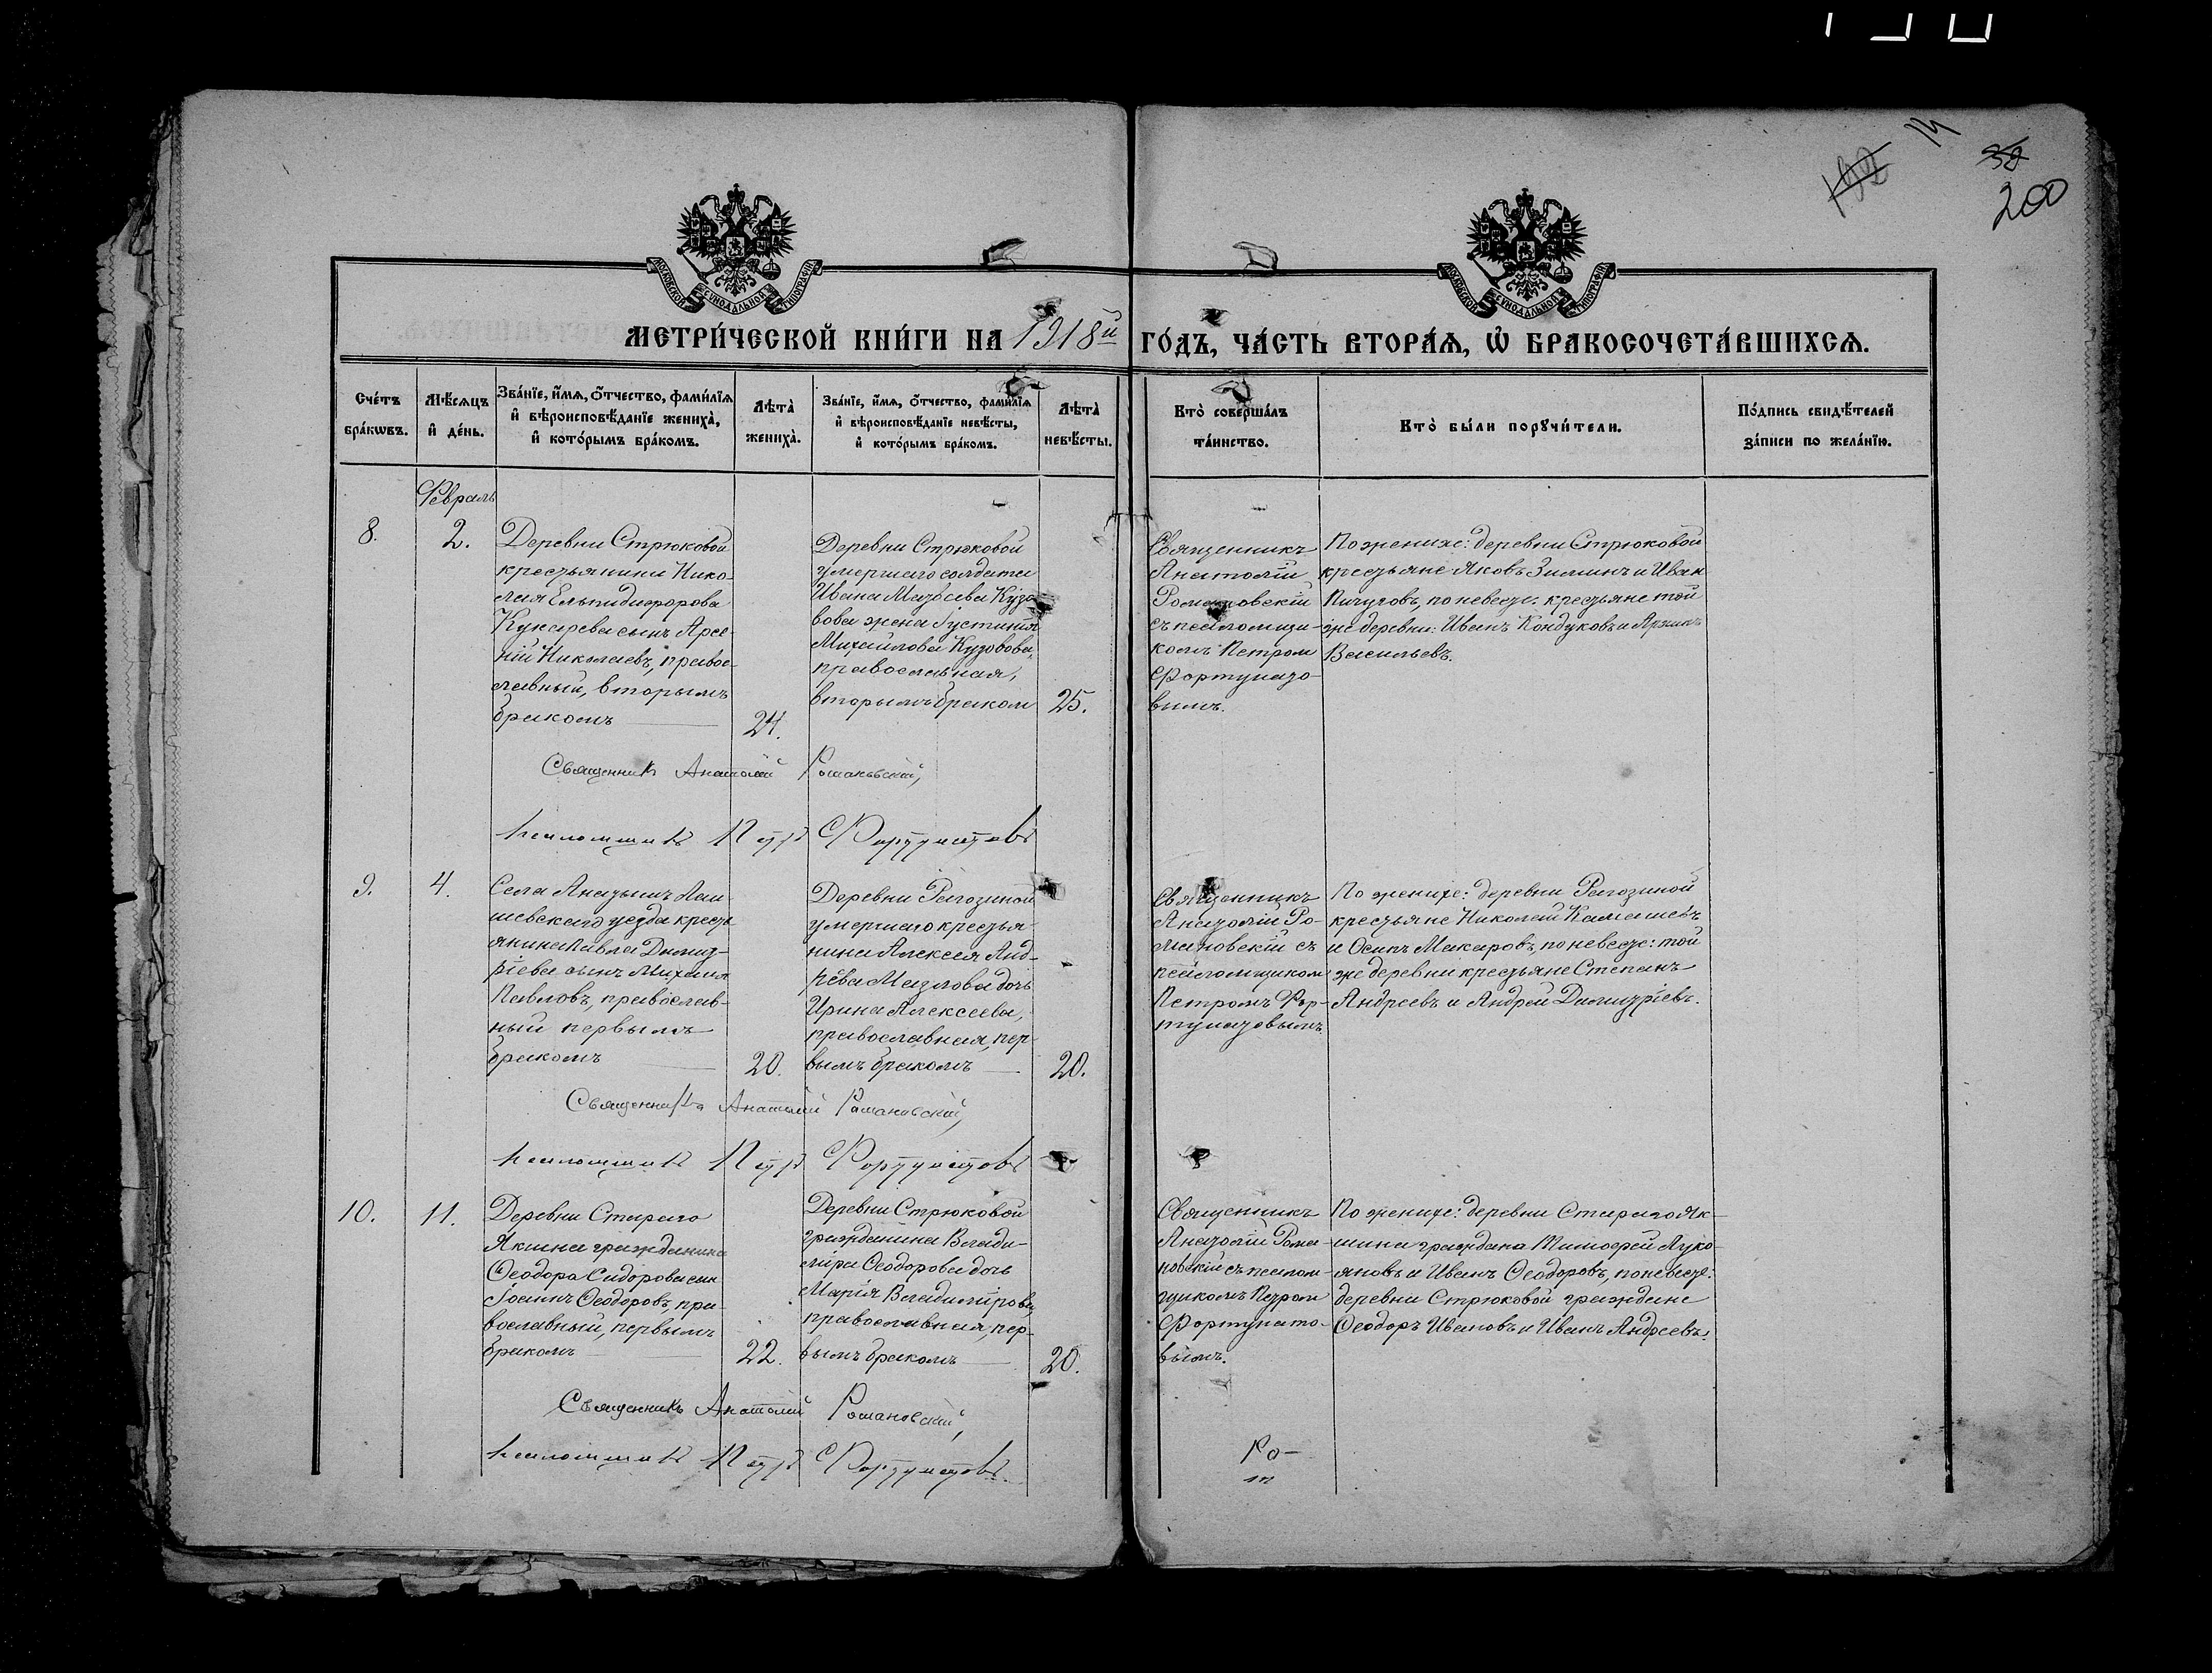 14
38
200
МОСКОВСКОЙ СѴНОДАЛЬНОЙ ТИПОГРАФІИ
МОСКОВСКОЙ СѴНОДАЛЬНОЙ ТИПОГРАФІИ
МЕТРИ́ЧЕСКОЙ КНИ́ГИ НА 1918й ГО́ДЪ, ЧА́СТЬ ВТОРА́Ѧ, Ѡ҆ БРАКОСОЧЕТА́ВШИХСѦ.
Сче́тъ
бра́кѡвъ.
Мѣ́сяцъ
и҆ де́нь.
Зва́нїе, и҆́мѧ, ѻ҆́тчество, фами́лїѧ
и҆ вѣроисповѣ́данїе жениха̀,
и҆ кото́рымъ бра́комъ.
Лѣта̀
жениха̀.
Зва́нїе, и҆́мѧ, ѻ҆́тчество, фами́лїѧ
и҆ вѣроисповѣ́данїе невѣ́сты,
и҆ кото́рымъ бра́комъ.
Лѣта̀
невѣ́сты.
Кто̀ соверша́лъ
та́инство.
Кто̀ бы́ли порꙋчи́тели.
По́дпись свидѣ́телей
за́писи по жела́нїю.
Февраль
8.
2.
Деревни Стрюковой
крестьянина Нико-
лая Ельпидифорова
Кукарева сынъ Арсе-
ній Николаевъ, правос-
лавный, вторымъ
бракомъ
24.
Деревни Стрюковой
умершаго солдата
Ивана Матвеева Кузо-
вова жена Іустинія
Михайлова Кузовова,
православная,
вторымъ браком
25.
Священникъ
Анатолій
Романовскій
съ псаломщи-
комъ Петром
Фортунато-
вымъ.
По женихе: деревни Стрюковой
крестьяне Яковъ Зиминъ и Иван
Пичуговъ, по невесте: крестьяне той
же деревни: Иванъ Кондуковъ и
Васильевъ.
Священникъ Анатолій Романовскій,
Псаломщикъ Петръ Фортунатовъ
9.
4.
Села Анатышъ Лаи-
шевскаго уезда кресть-
янина Павла Димит-
ріева сынъ Михаил
Павловъ, православ-
ный первымъ
бракомъ
20.
Деревни Рагозиной
умершаго крестья-
нина Алексея Анд-
реева Маслова дочь
Ирина Алексеева,
православная, пер-
вымъ бракомъ
20.
Священникъ
Анатолій Ро-
мановскій съ
псаломщиком
Петромъ Фор-
тунатовымъ.
По женихе: деревни Рагозиной
крестьяне Николай Камашевъ
и Осипъ Макаровъ, по невесте: той
же деревни крестьяне Степанъ
Андреевъ и Андрей Димитріевъ.
Священникъ Анатолій Романовскій,
Псаломщикъ Петръ Фортунатовъ
10.
11.
Деревни Стараго
Якшина гражданина
Ѳеодора Сидорова сын
Іоаннъ Ѳеодоровъ, пра-
вославный, первымъ
бракомъ
22.
Деревни Стрюковой
гражданина Влади-
міра Ѳеодорова дочь
Марія Владимірова,
православная, пер-
вымъ бракомъ
20.
Священникъ
Анатолій Рома-
новскій съ псалом-
щикомъ Петром
Фортунато-
вымъ.
По женихе: деревни Стараго Як-
шина граждана Тимофей Луко-
яновъ и Иванъ Ѳеодоровъ, по невесте:
деревни Стрюковой граждане
Ѳеодоръ Ивановъ и Иванъ Андреевъ.
Священникъ Анатолій Романовскій,
Псаломщикъ Петръ Фортунатовъ.
Ро-